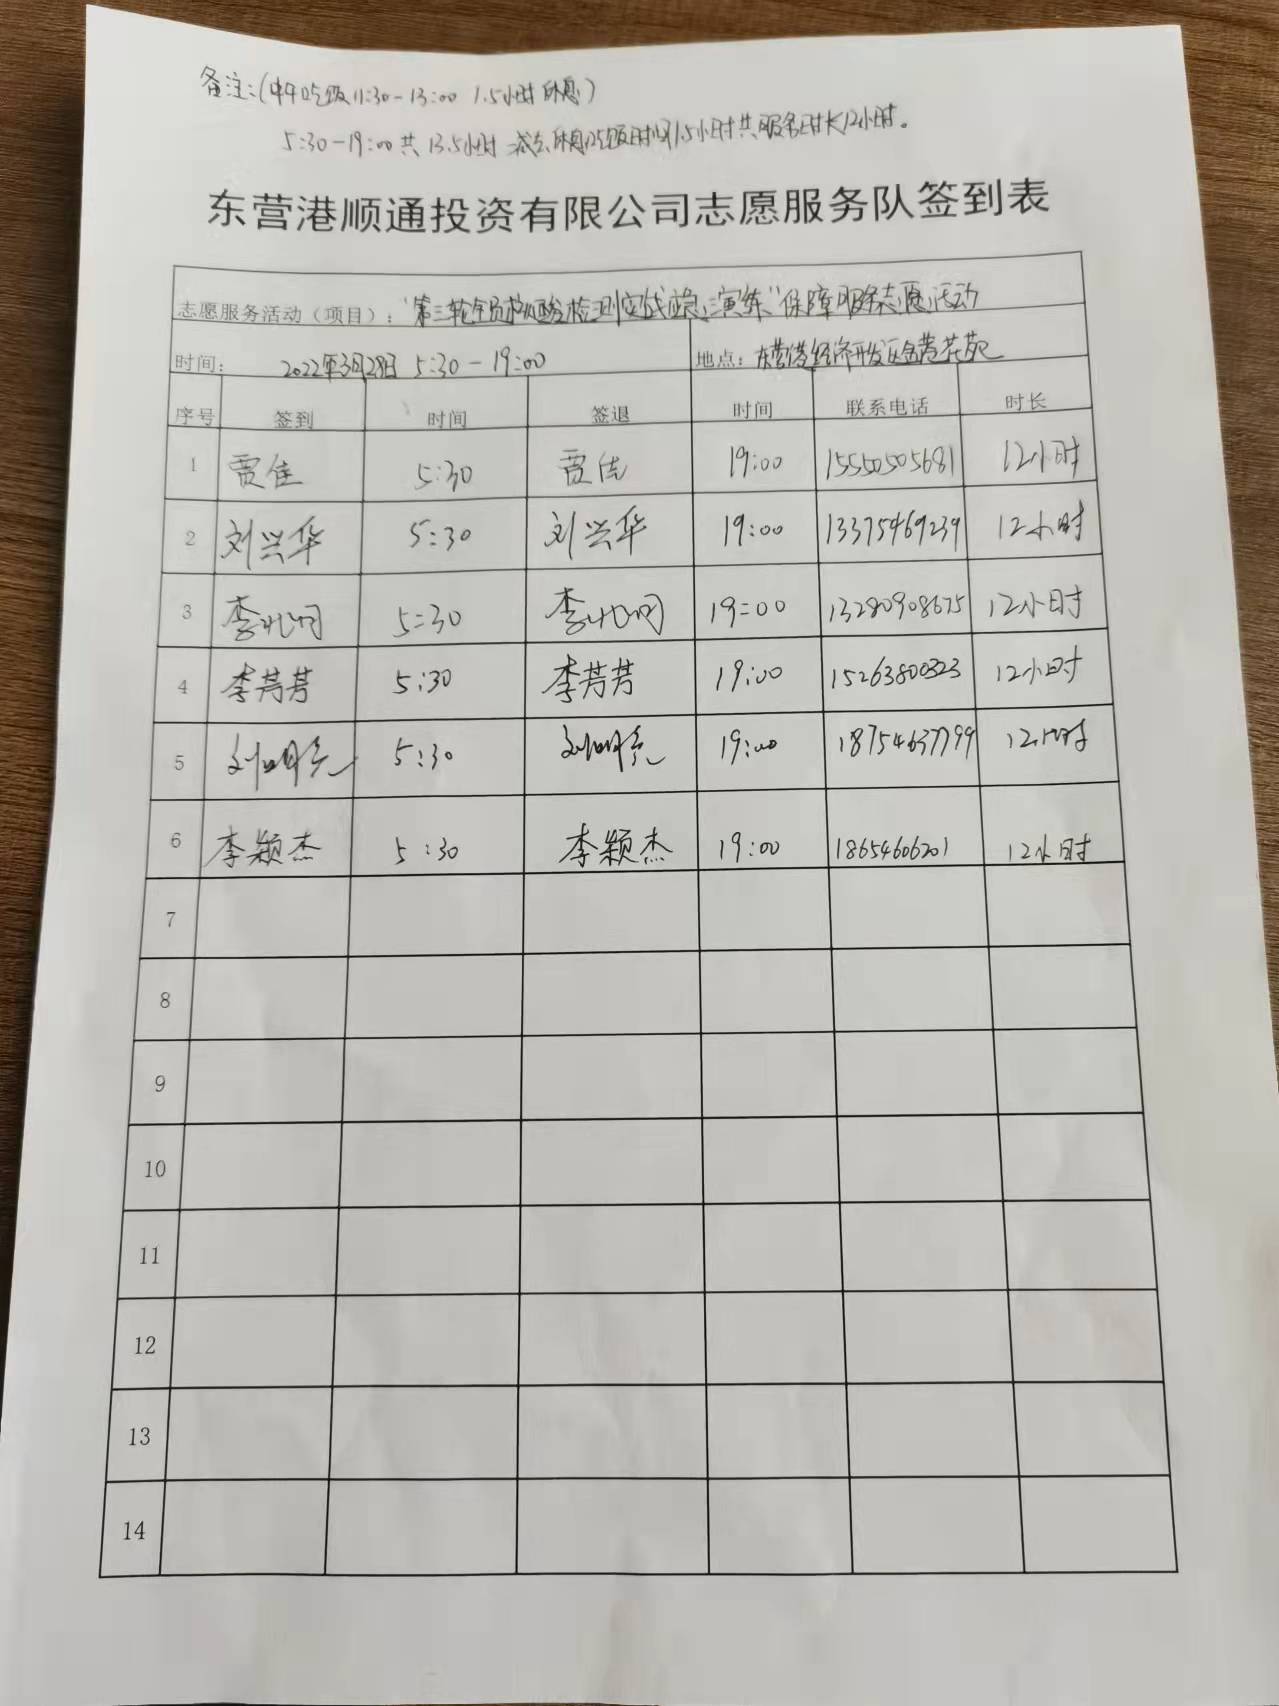 备注:(中午吃饭11:30-13:00 1.5小时休息)
5:30-19:00共13.5小时 减去休息吃饭时间1.5小时共服务时长12小时。
东营港顺通投资有限公司志愿服务队签到表
志愿服务活动(项目):"第三轮全员核酸检测实战应急演练"保障服务志愿活动
时间: 2022年3月28日 5:30-19:00 地点:东营港经济开发区金茂花苑
序号 签到 时间 签退 时间 联系电话 时长
1 贾佳 5:30 贾佳 19:00 15550505681 12小时
2 刘兴华 5:30 刘兴华 19:00 13375469239 12小时
3 李 5:30 李 19:00 13280908675 12小时
4 李芳芳 5:30 李芳芳 19:00 15263800323 12小时
5 刘明亮 5:30 刘明亮 19:00 18754637799 12小时
6 李颖杰 5:30 李颖杰 19:00 18654606201 12小时
7
8
9
10
11
12
13
14